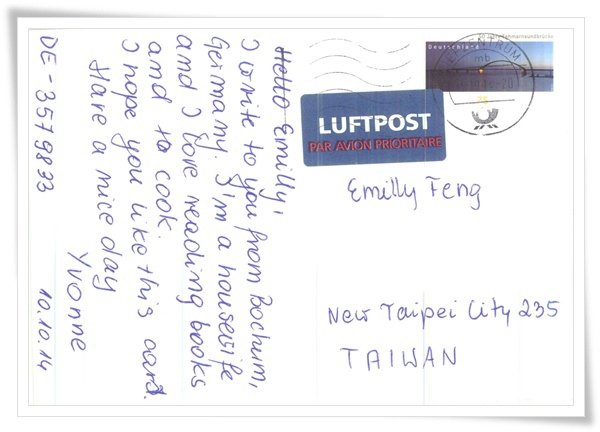 Hello Emilly,
I write to you from Bochum,
Germany. I'm a housewife
and I love reading books
and to cook.
I hope you like this card.
Have a nice day
Yvonne
DE-3579833 10.10.14
Deutschland
LUFTPOST
PAR AVION PRIORITAIRE
Emilly Feng
New Taipei City 235
TAIWAN